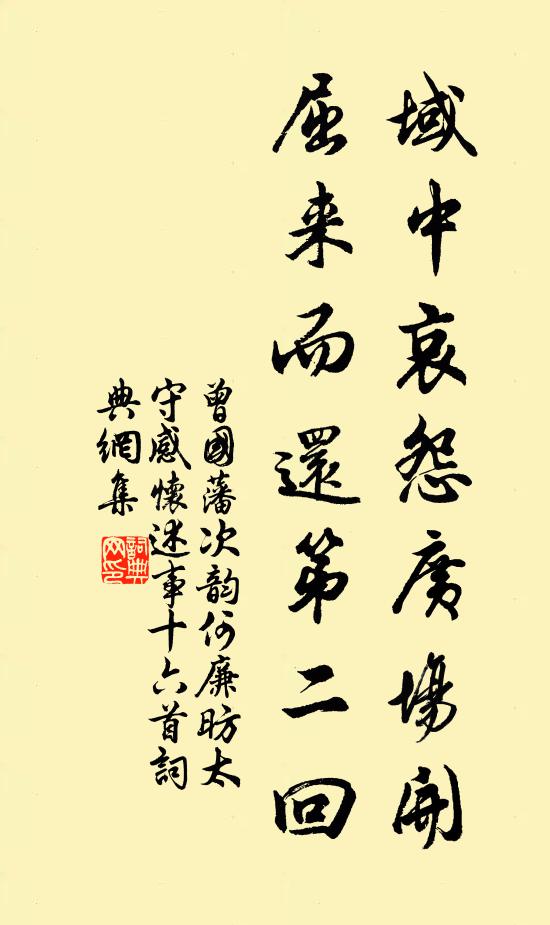 域中哀怨廣場開
屈来而還第二回
曾國藩次韵何廉昉太
守感懷述事十六首詞
典網集
詞典
网印